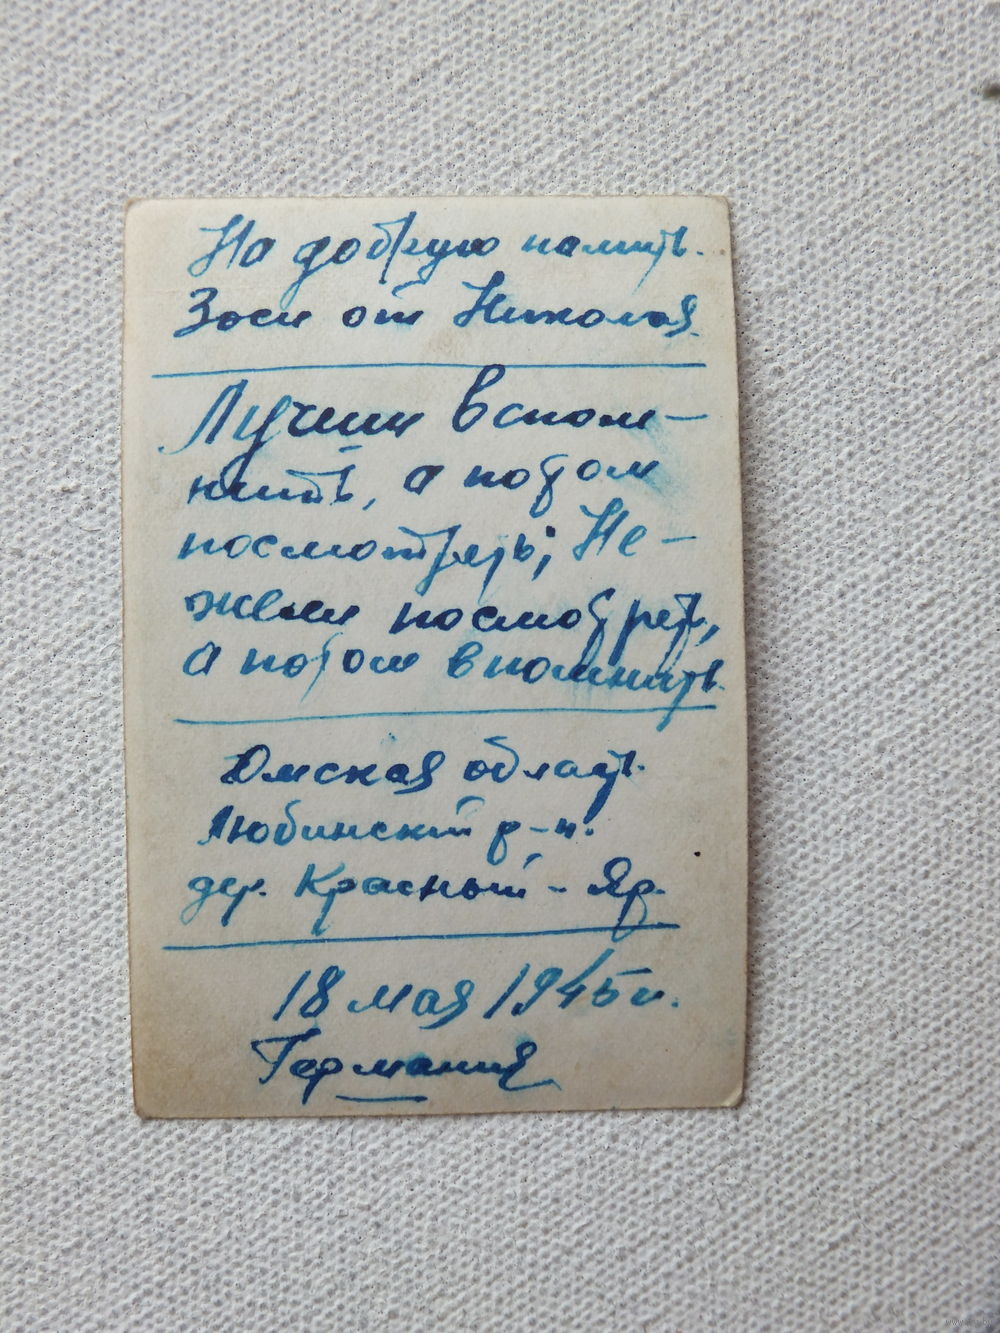 На добрую память.
Зоси от Николая
Лучши вспом-
нить, а потом
посмотреть; Не-
жели посмотреть,
а потом впомнить
Омская область.
Любинский р-н.
дер. Красный-Яр.
18 мая 1945 г.
Германия